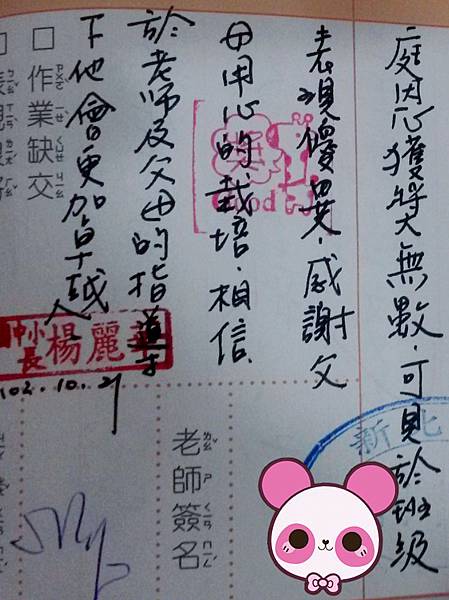 庭恩獲獎無數，可見於班級
表現優異，感謝父
母用心的栽培，相信
於老師及父母的指導
下他會更加卓越
□作業缺交
Good
中小
長
楊麗
102.10.21
老師簽名
新北